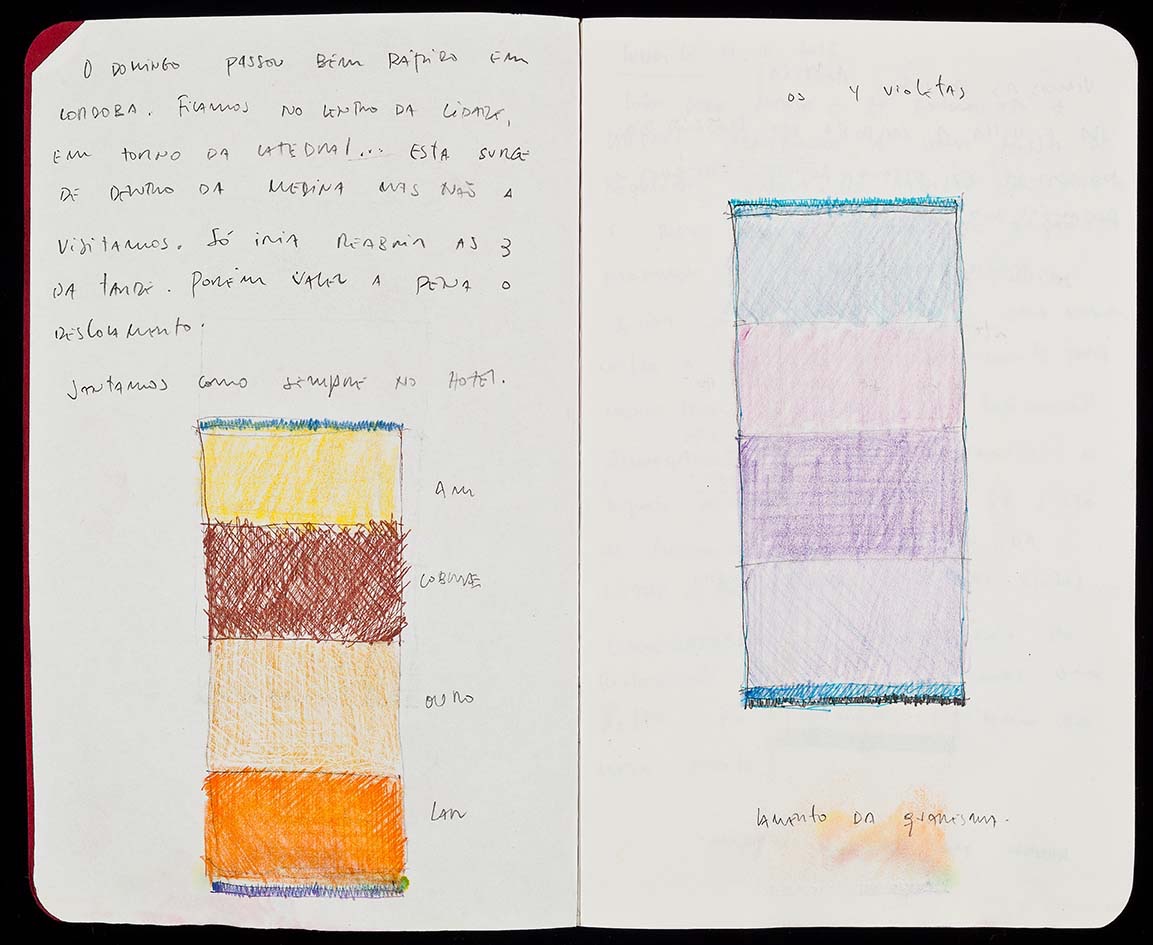 O DOMINGO PASSOU BEM RÁPIDO EM
CORDOBA. FICAMOS NO CENTRO DA CIDADE,
EM TORNO DA CATEDRAL... ESTA SURGE
DE DENTRO DA MEDINA MAS NÃO A
VISITAMOS. SÓ IRIA REABRIR AS 3
DA TARDE. PORÉM VALEU A PENA O
DESLOCAMENTO.
JANTAMOS COMO SEMPRE NO HOTEL.
AM
COBRE
OURO
LAR
OS 4 VIOLETAS
LAMENTO DA QUARESMA.